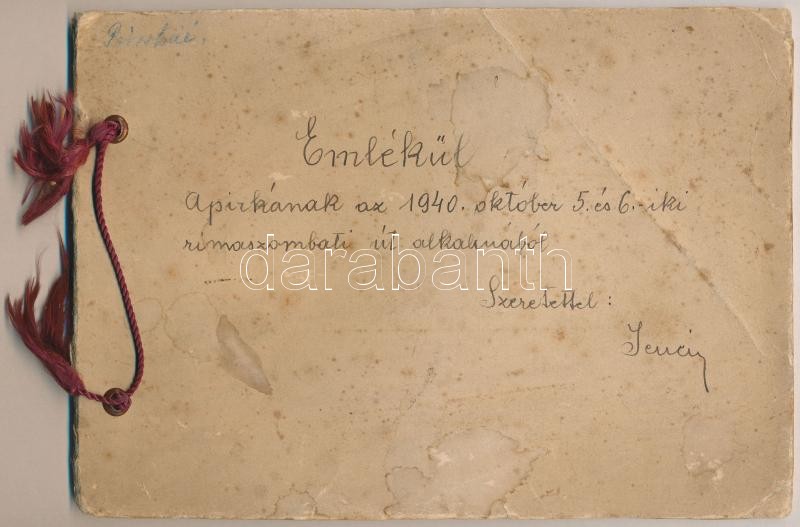 Piroskáé.
Emlékül
Apirkának az 1940. október 5. és 6.-iki
rimaszombati út alkalmából
darabanth
Szeretettel:
Jenci